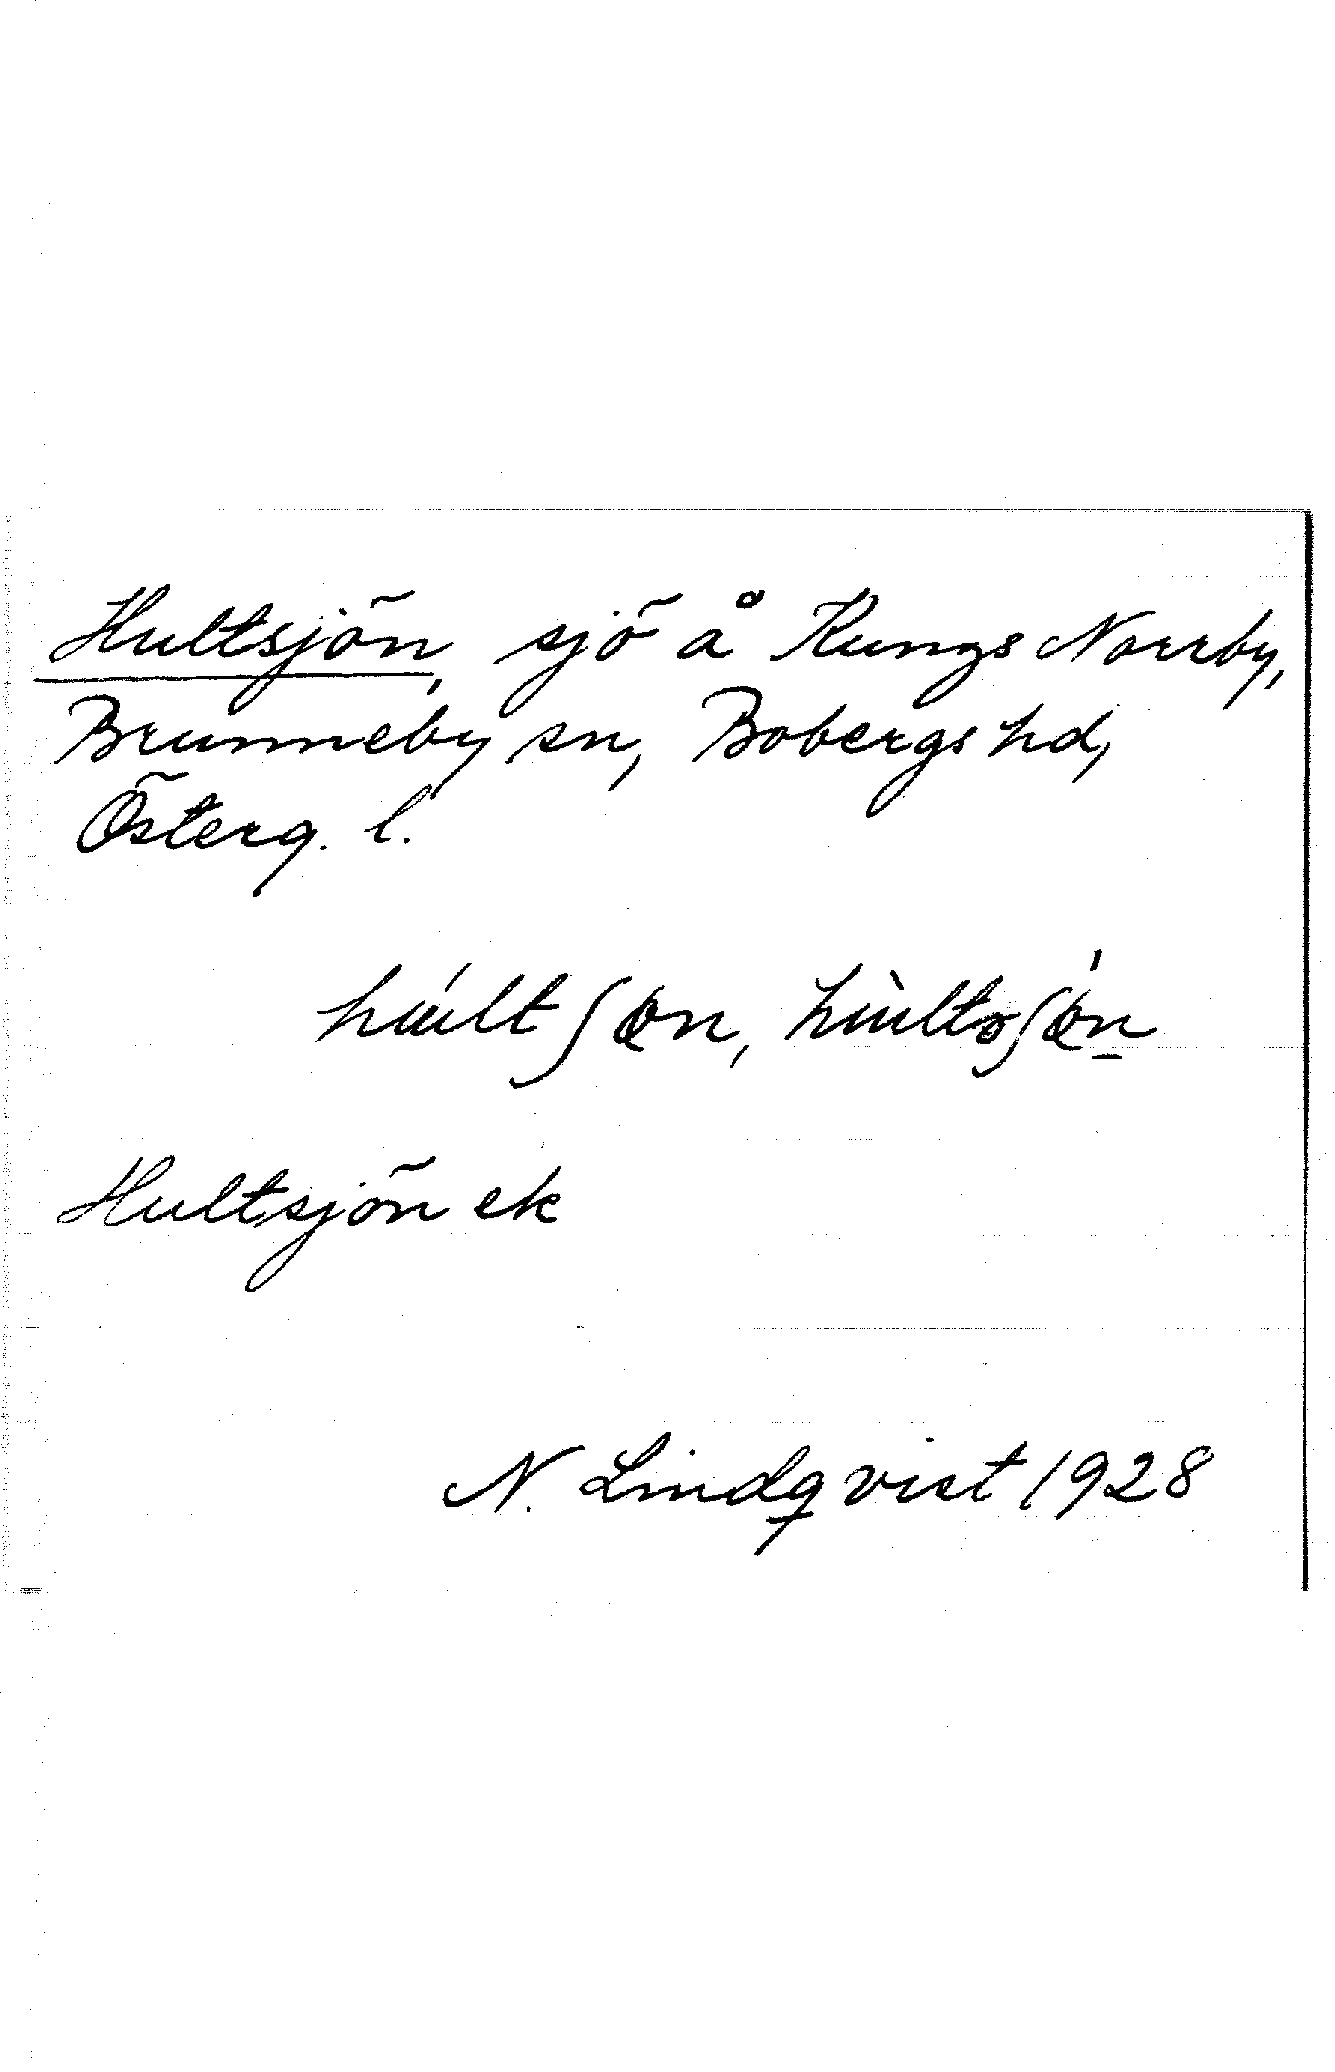 Hultsjön, sjö å Kungs Norrby,
Brunneby sn, Bobergs hd,
Österg. l.
Hultsjön ek
N. Lindqvist 1928